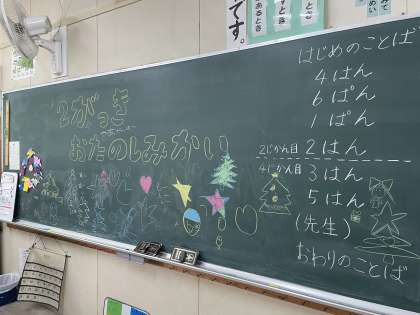 ２がっき
おたのしみかい
はじめのことば
4はん
6ぱん
1ぱん
2じかん目 2はん
4じかん目 3はん
5はん
(先生)
おわりのことば
です。
あるとき
すとき
とき